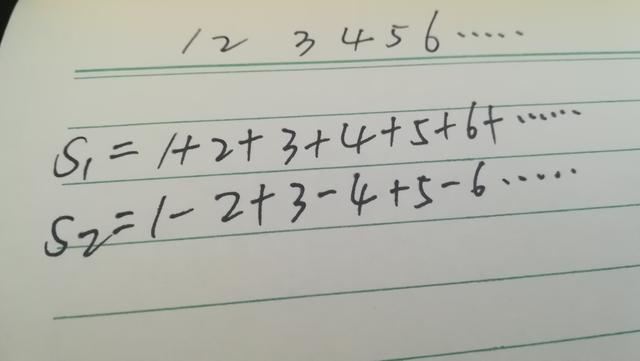 1 2 3 4 5 6 ······
S₁ = 1+2+3+4+5+6+ ······
S₂ = 1-2+3-4+5-6 ······